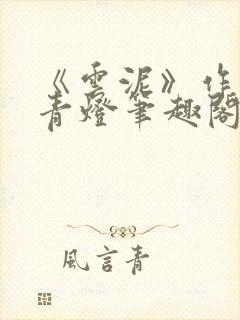 《雲泥》作
青燈筆趣閣
風言青